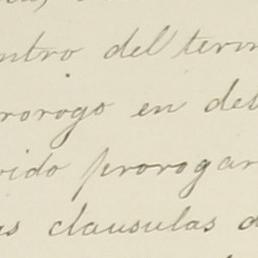 ntro del term
rorogo en deb
rido prorogar
as clausulas d